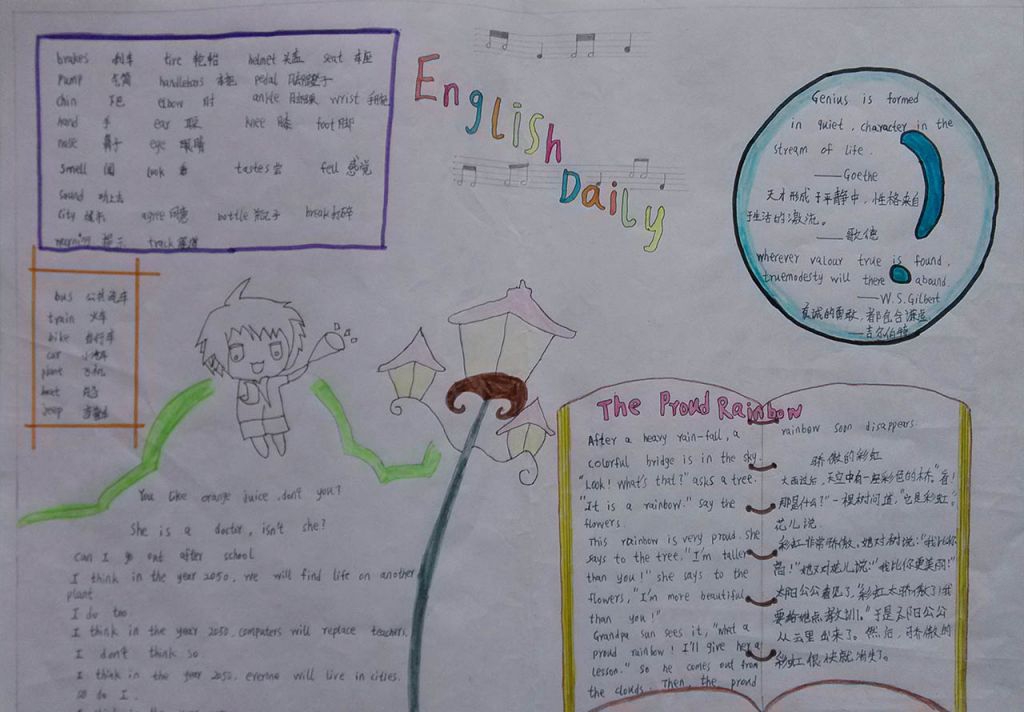 brakes 刹车 tire 轮胎 helmet 头盔 seat 车座
Pump 气筒 handlebars 车把 pedal
chin 下巴 elbow 肘 ankle wrist 手腕
hand 手 ear knee 膝 foot 脚
nose 鼻子 eye 眼睛
Smell 闻 look 看 tastes 尝 feel 感觉
Sound
City 城市 agree 同意 bottle 瓶子 break 打碎
warning 提示 track
English
Daily
Genius is formed
in quiet, character in the
stream of life.
——Goethe
天才形成于平静中，性格来自
于生活的激流。
——歌德
wherever valour true is found,
truemodesty will there abound.
——W.S.Gilbert
真诚的勇敢，都包含谦逊
——吉尔伯特
bus 公共汽车
train 火车
bike 自行车
car 小汽车
plant
boat 船
Jeep
You like orange juice, don't you?
She is a doctor, isn't she?
Can I go out after school
I think in the year 2050, we will find life on another
plant
I do too.
I think in the year 2050, computers will replace teachers.
I don't think so.
I think in the year 2050, will live in cities.
so do I.
The Proud Rainbow
After a heavy rain-fall, a
colorful bridge is in the sky.
"Look! What's that?" asks a tree.
"It is a rainbow." say the
flowers.
This rainbow is very proud. She
says to the tree, "I'm taller
than you!" she says to the
flowers, "I'm more beautiful
than you!"
Grandpa sun sees it, "what a
proud rainbow! I'll give her a
lesson." So he comes out from
the clouds. Then, the proud
rainbow soon disappears.
骄傲的彩虹
大雨过后，天空中有一座彩色的桥。"看！
那是什么？"一棵树问道。"它是彩虹。"
花儿说。
彩虹非常骄傲，她对树说："我比你
高！"她又对花儿说："我比你更美丽！"
太阳公公看见了，"彩虹太骄傲了！我
要给她点教训。"于是太阳公公
从云里出来了。然后，骄傲的
彩虹很快就消失了。